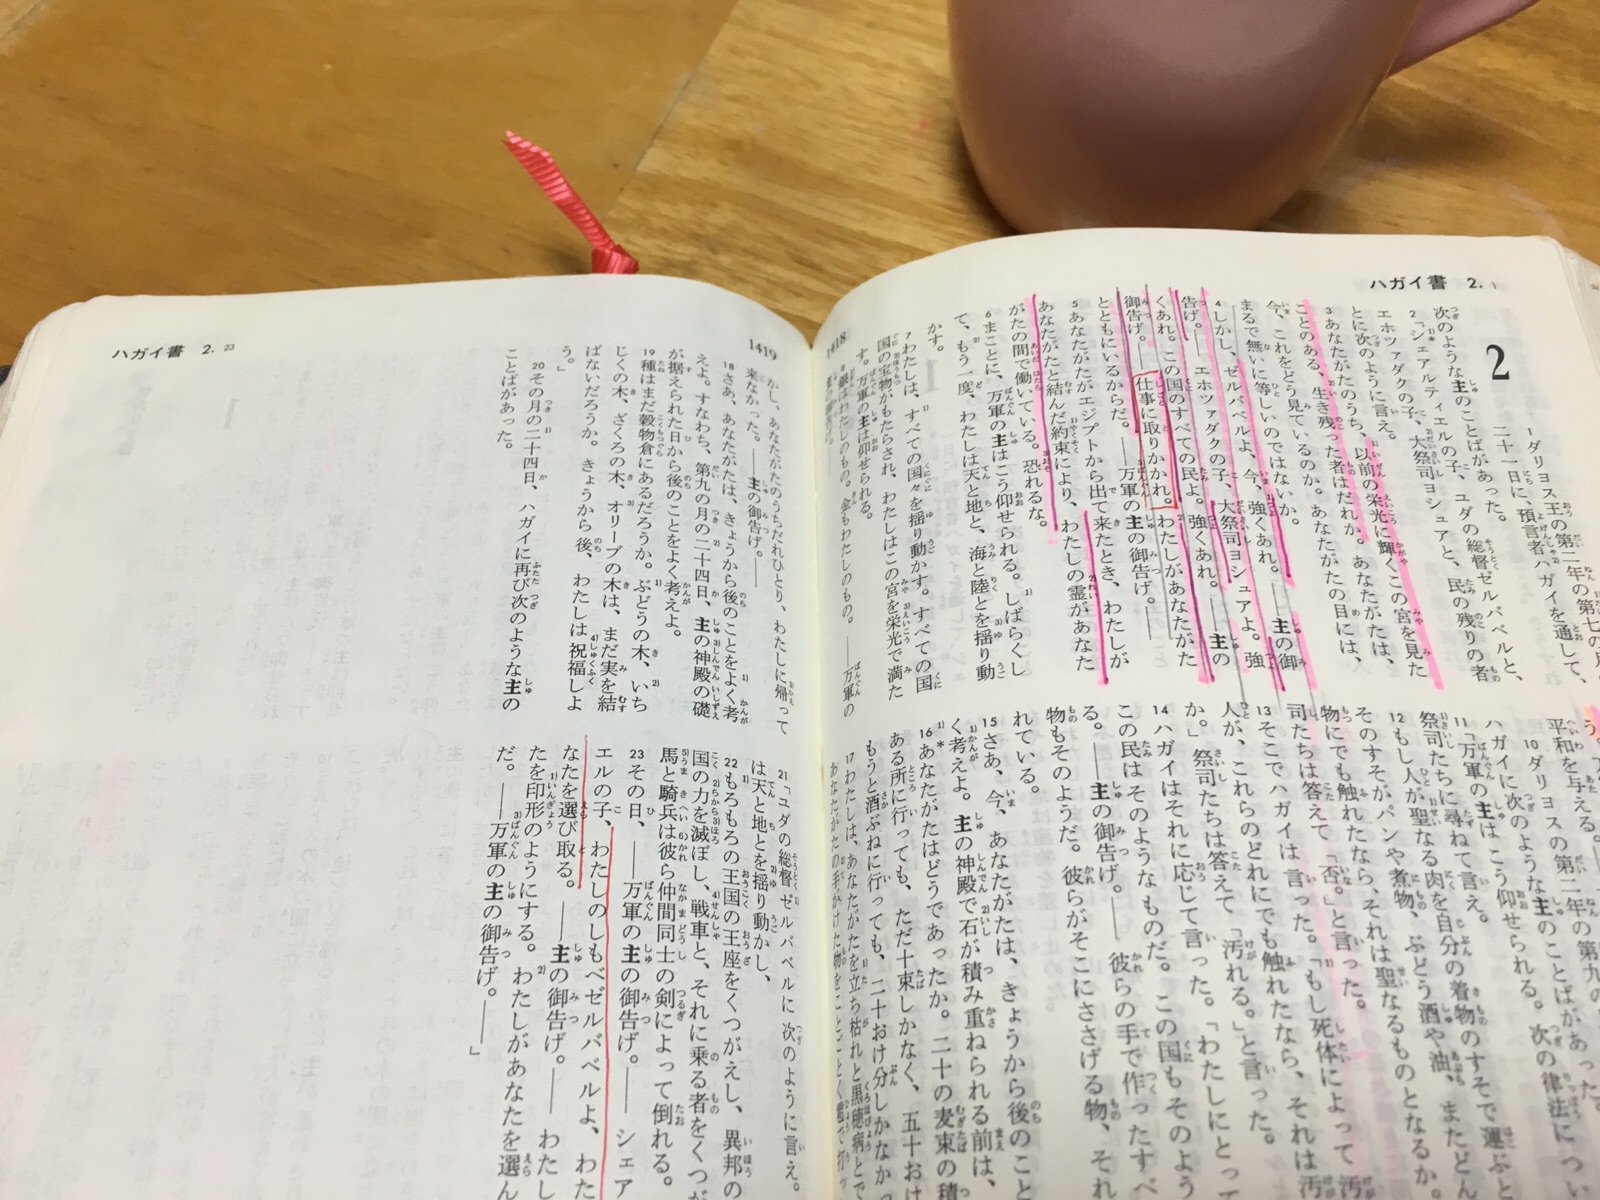 ハガイ書 2. 1
2
1 ダリヨス王の第二年の第七の
二十一日に、預言者ハガイを通して、
次のような主のことばがあった。
2「シェアルティエルの子、ユダの総督ゼルバベルと、
エホツァダクの子、大祭司ヨシュアと、民の残りの者
とに次のように言え。
3 あなたがたのうち、以前の栄光に輝くこの宮を見た
ことのある、生き残った者はだれか。あなたがたは、
今、これをどう見ているのか。あなたがたの目には、
まるで無いに等しいのではないか。
4 しかし、ゼルバベルよ、今、強くあれ。――主の御
告げ。――エホツァダクの子、大祭司ヨシュアよ。強
くあれ。この国のすべての民よ。強くあれ。――主の
御告げ。――仕事に取りかかれ。わたしがあなたがた
とともにいるからだ。――万軍の主の御告げ。――
5 あなたがたがエジプトから出て来たとき、わたしが
あなたがたと結んだ約束により、わたしの霊があなた
がたの間で働いている。恐れるな。
6 まことに、万軍の主はこう仰せられる。しばらくし
て、もう一度、わたしは天と地と、海と陸とを揺り動
かす。
7 わたしは、すべての国々を揺り動かす。すべての国
国の宝物がもたらされ、わたしはこの宮を栄光で満た
す。万軍の主は仰せられる。
8 銀はわたしのもの。金もわたしのもの。――万軍の
主の御告げ。
1418
う。
平和を与える。――
10 ダリヨスの第二年の第九の
ハガイに次のような主のことばがあった。
11「万軍の主はこう仰せられる。次の律法につい
祭司たちに尋ねて言え。
12 もし人が聖なる肉を自分の着物のすそで運ぶと
そのすそがパンや煮物、ぶどう酒や油、またどん
物にでも触れたなら、それは聖なるものとなるか
司たちは答えて「否。」と言った。
13 そこでハガイは言った。「もし死体によって汚
人が、これらのどれにでも触れたなら、それは汚
か。」祭司たちは答えて「汚れる。」と言った。
14 ハガイはそれに応じて言った。「わたしにとっ
この民はそのようなものだ。この国もそのよう
る。――主の御告げ。――彼らの手で作ったすべ
物もそのようだ。彼らがそこにささげる物、それ
れている。
15 さあ、今、あなたがたは、きょうから後のこと
く考えよ。主の神殿で石が積み重ねられる前は、
16 あなたがたはどうであったか。二十の麦束の積
ある所に行っても、ただ十束しかなく、五十おけ
もうと酒ぶねに行っても、二十おけ分しかなかっ
17 わたしは、あなたがたを立ち枯れと黒穂病とで
あなたがたの手がけた物をことごとく雹で打っ
1419
ハガイ書 2. 23
かし、あなたがたのうちだれひとり、わたしに帰って
来なかった。――主の御告げ。――
18 さあ、あなたがたは、きょうから後のことをよく考
えよ。すなわち、第九の月の二十四日、主の神殿の礎
が据えられた日から後のことをよく考えよ。
19 種はまだ穀物倉にあるだろうか。ぶどうの木、いち
じくの木、ざくろの木、オリーブの木は、まだ実を結
ばないだろうか。きょうから後、わたしは祝福しよ
う。」
20 その月の二十四日、ハガイに再び次のような主の
ことばがあった。
21「ユダの総督ゼルバベルに次のように言え。
は天と地とを揺り動かし、
22 もろもろの王国の王座をくつがえし、異邦の
国の力を滅ぼし、戦車と、それに乗る者をくつが
馬と騎兵は彼ら仲間同士の剣によって倒れる。
23 その日、――万軍の主の御告げ。――シェア
エルの子、わたしのしもべゼルバベルよ、わた
なたを選び取る。――主の御告げ。――わたし
たを印形のようにする。わたしがあなたを選ん
だ。――万軍の主の御告げ。――」